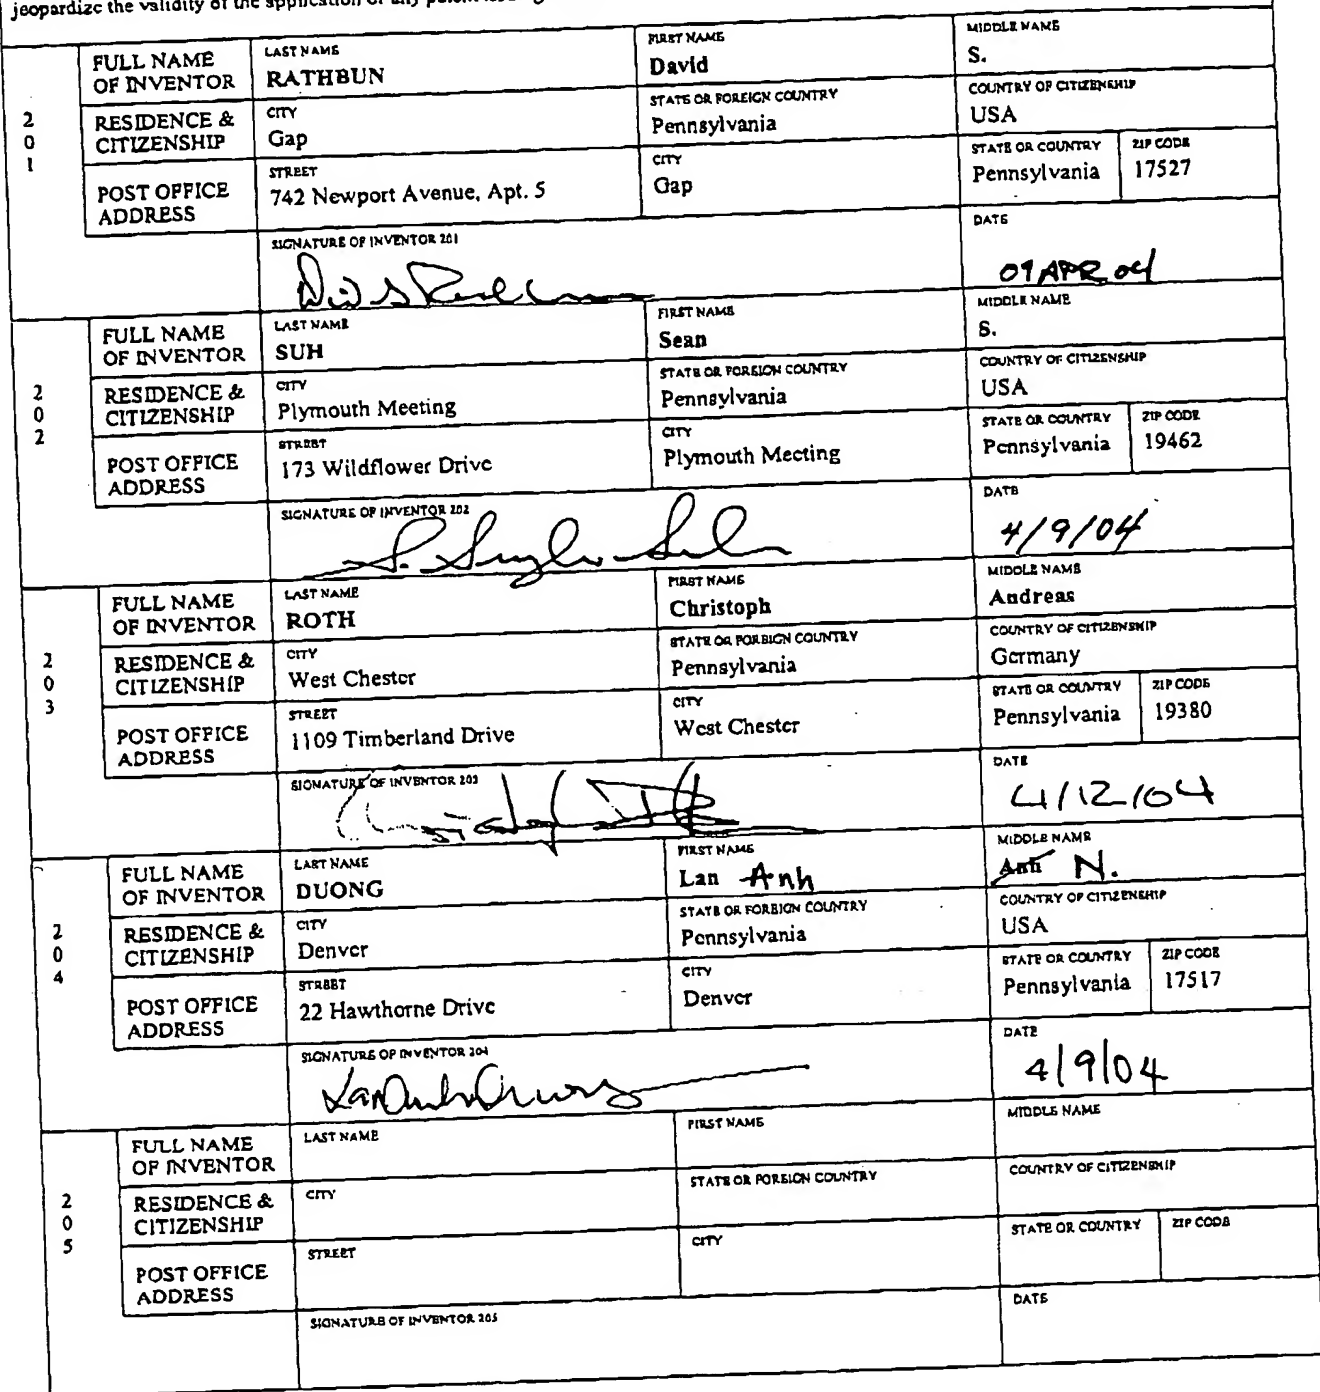 jeopardize the validity of the application or any patent
2 0 1
FULL NAME OF INVENTOR
LAST NAME
RATHBUN
FIRST NAME
David
MIDDLE NAME
S.
RESIDENCE & CITIZENSHIP
CITY
Gap
STATE OR FOREIGN COUNTRY
Pennsylvania
COUNTRY OF CITIZENSHIP
USA
POST OFFICE ADDRESS
STREET
742 Newport Avenue, Apt. 5
CITY
Gap
STATE OR COUNTRY
Pennsylvania
ZIP CODE
17527
SIGNATURE OF INVENTOR 201
DATE
09 APR 04
2 0 2
FULL NAME OF INVENTOR
LAST NAME
SUH
FIRST NAME
Sean
MIDDLE NAME
S.
RESIDENCE & CITIZENSHIP
CITY
Plymouth Meeting
STATE OR FOREIGN COUNTRY
Pennsylvania
COUNTRY OF CITIZENSHIP
USA
POST OFFICE ADDRESS
STREET
173 Wildflower Drive
CITY
Plymouth Meeting
STATE OR COUNTRY
Pennsylvania
ZIP CODE
19462
SIGNATURE OF INVENTOR 202
DATE
4/9/04
2 0 3
FULL NAME OF INVENTOR
LAST NAME
ROTH
FIRST NAME
Christoph
MIDDLE NAME
Andreas
RESIDENCE & CITIZENSHIP
CITY
West Chester
STATE OR FOREIGN COUNTRY
Pennsylvania
COUNTRY OF CITIZENSHIP
Germany
POST OFFICE ADDRESS
STREET
1109 Timberland Drive
CITY
West Chester
STATE OR COUNTRY
Pennsylvania
ZIP CODE
19380
SIGNATURE OF INVENTOR 203
DATE
4/12/04
2 0 4
FULL NAME OF INVENTOR
LAST NAME
DUONG
FIRST NAME
Lan Anh
MIDDLE NAME
Anh N.
RESIDENCE & CITIZENSHIP
CITY
Denver
STATE OR FOREIGN COUNTRY
Pennsylvania
COUNTRY OF CITIZENSHIP
USA
POST OFFICE ADDRESS
STREET
22 Hawthorne Drive
CITY
Denver
STATE OR COUNTRY
Pennsylvania
ZIP CODE
17517
SIGNATURE OF INVENTOR 204
DATE
4/9/04
2 0 5
FULL NAME OF INVENTOR
LAST NAME
FIRST NAME
MIDDLE NAME
RESIDENCE & CITIZENSHIP
CITY
STATE OR FOREIGN COUNTRY
COUNTRY OF CITIZENSHIP
POST OFFICE ADDRESS
STREET
CITY
STATE OR COUNTRY
ZIP CODE
SIGNATURE OF INVENTOR 205
DATE